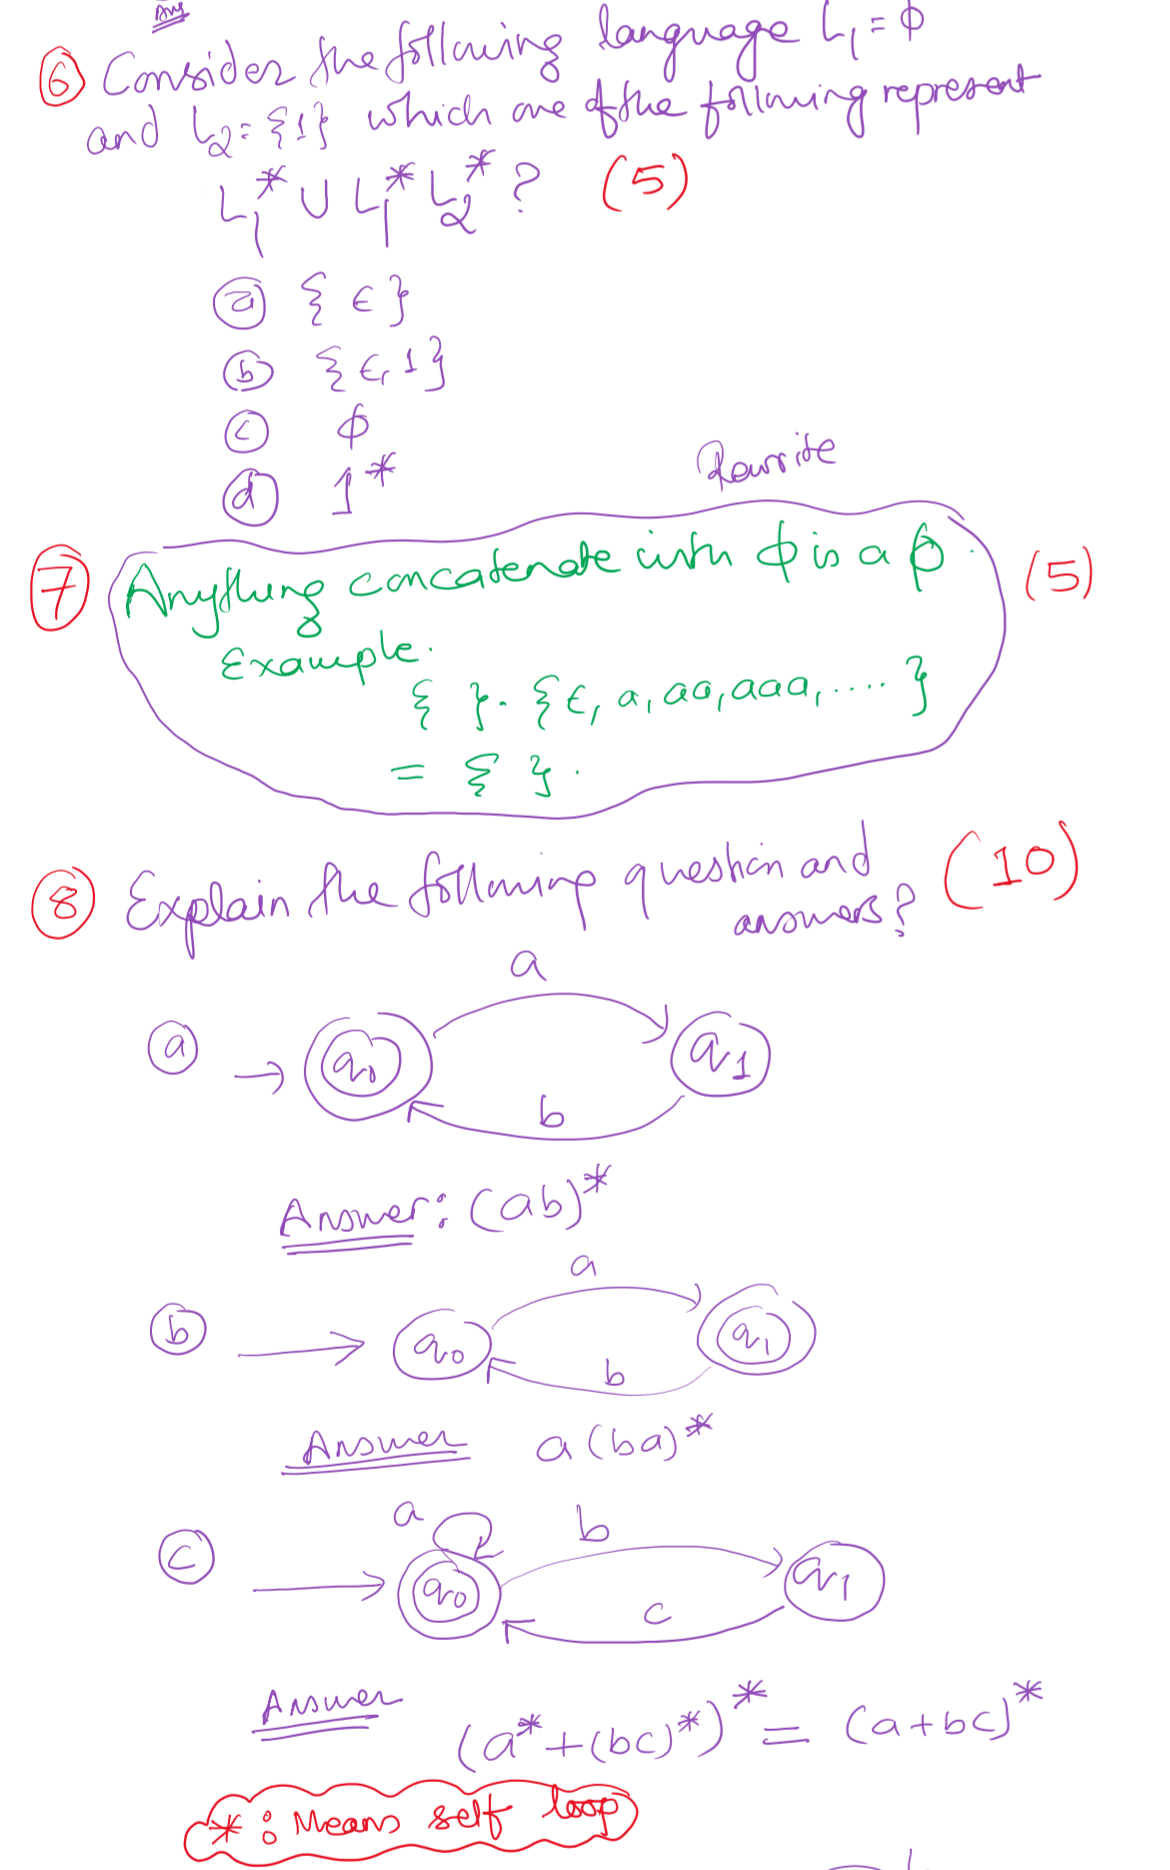 Ans
⑥ Consider the following language L₁ = ϕ
and L₂ = {1} which one of the following represent
L₁* ∪ L₁* L₂* ? (5)
ⓐ { ϵ }
ⓑ { ϵ, 1 }
ⓒ ϕ
ⓓ 1*
Rewrite
⑦ Anything concatenate with ϕ is a ϕ. (5)
Example.
{ }. { ϵ, a, aa, aaa, .... }
= { }.
⑧ Explain the following question and (10)
answers?
a
ⓐ → q₀ q₁
b
Answer: (ab)*
a
ⓑ → q₀ q₁
b
Answer a(ba)*
a b
ⓒ → q₀ q₁
c
Answer (a* + (bc)*)* = (a+bc)*
* : Means self loop